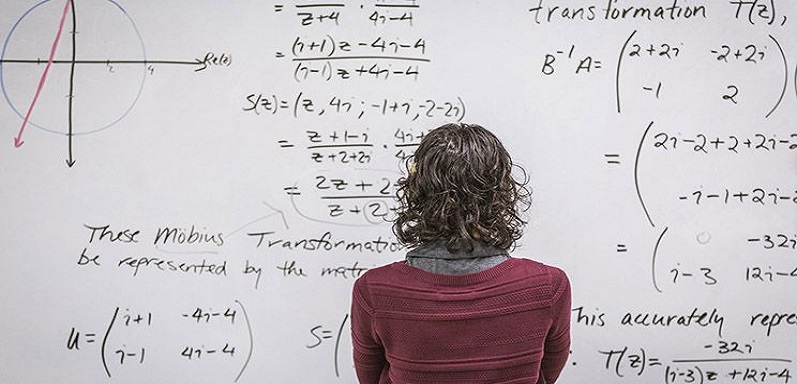 Re(z)
2 4
= /z+4 · /4i-4
= (i+1)z-4i-4 / (i-1)z+4i-4
S(z)=(z, 4i; -1+i, -2-2i)
= z+1-i / z+2+2i · 4i
= 2z+2 / z+2
These Möbius Transformatio
be represented by the matr
U= (i+1 -4i-4
i-1 4i-4)
S= (
transformation T(z),
B⁻¹A= (2+2i -2+2i
-1 2)
= (2i-2+2+2i-2
-i-1+2i-2
= ( 0 -32i
i-3 12i-4
his accurately repre
∴ T(z)= -32i / (i-3)z+12i-4